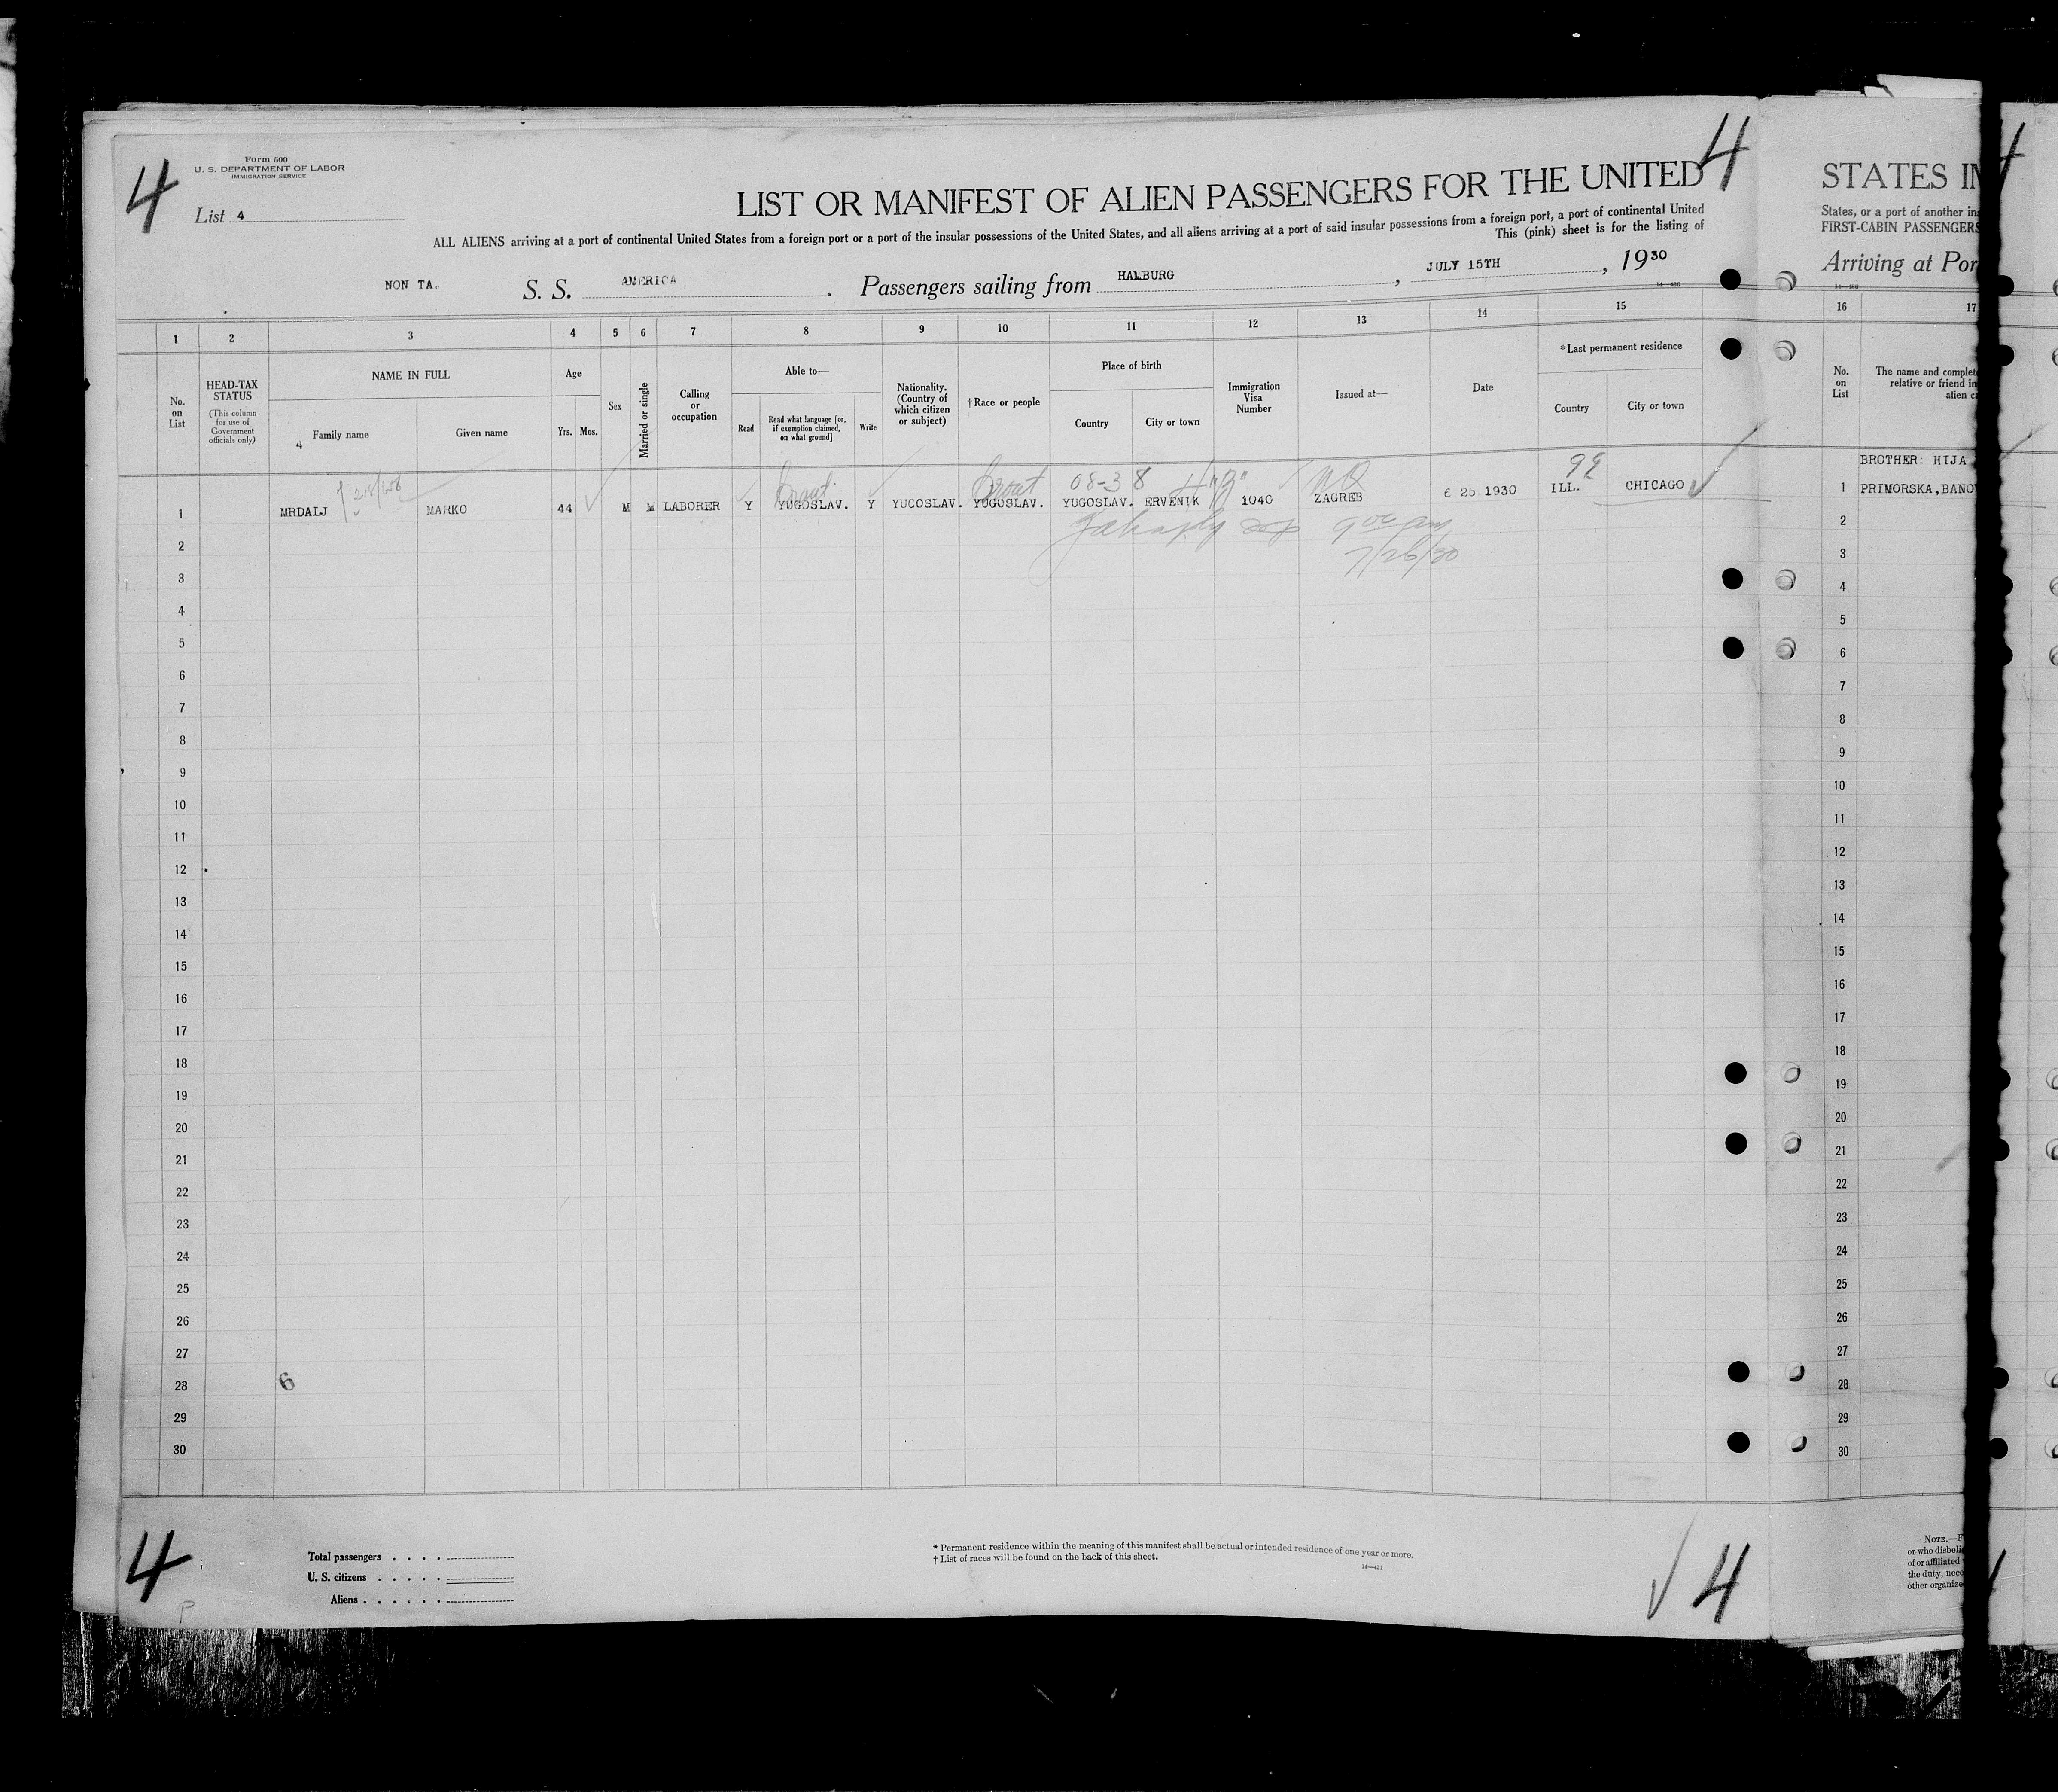 4
Form 500
U. S. DEPARTMENT OF LABOR
IMMIGRATION SERVICE
List 4
4
LIST OR MANIFEST OF ALIEN PASSENGERS FOR THE UNITED
ALL ALIENS arriving at a port of continental United States from a foreign port or a port of the insular possessions of the United States, and all aliens arriving at a port of said insular possessions from a foreign port, a port of continental United
This (pink) sheet is for the listing of
NON TA. S. S. AMERICA. Passengers sailing from HAMBURG, JULY 15TH, 1930
STATES IN
States, or a port of another in
FIRST-CABIN PASSENGERS
Arriving at Por
1 2 3 4 5 6 7 8 9 10 11 12 13 14 15
16 17
No. on List
HEAD-TAX STATUS
(This column for use of Government officials only)
NAME IN FULL
4 Family name
Given name
Age
Yrs. Mos.
Sex
Married or single
Calling or occupation
Able to—
Read
Read what language [or, if exemption claimed, on what ground]
Write
Nationality. (Country of which citizen or subject)
†Race or people
Place of birth
Country
City or town
Immigration Visa Number
Issued at—
Date
*Last permanent residence
Country
City or town
No. on List
The name and complet
relative or friend in
alien c
Croat 08-3 8 99
BROTHER: HIJA
1 MRDALJ MARKO 44 M M LABORER Y YUGOSLAV. Y YUCOSLAV. YUGOSLAV. YUGOSLAV. ERVENIK 1040 ZAGREB 6 25 1930 ILL. CHICAGO
1 PRIMORSKA,BANO
9 00 am
7/26/30
2
3
4
5
6
7
8
9
10
11
12
13
14
15
16
17
18
19
20
21
22
23
24
25
26
27
28 6
29
30
2
3
4
5
6
7
8
9
10
11
12
13
14
15
16
17
18
19
20
21
22
23
24
25
26
27
28
29
30
4
Total passengers . . . .
U. S. citizens . . . . .
Aliens . . . . . .
* Permanent residence within the meaning of this manifest shall be actual or intended residence of one year or more.
† List of races will be found on the back of this sheet.
4
P
NOTE.—F
or who disbeli
of or affiliated
the duty, nece
other organiz